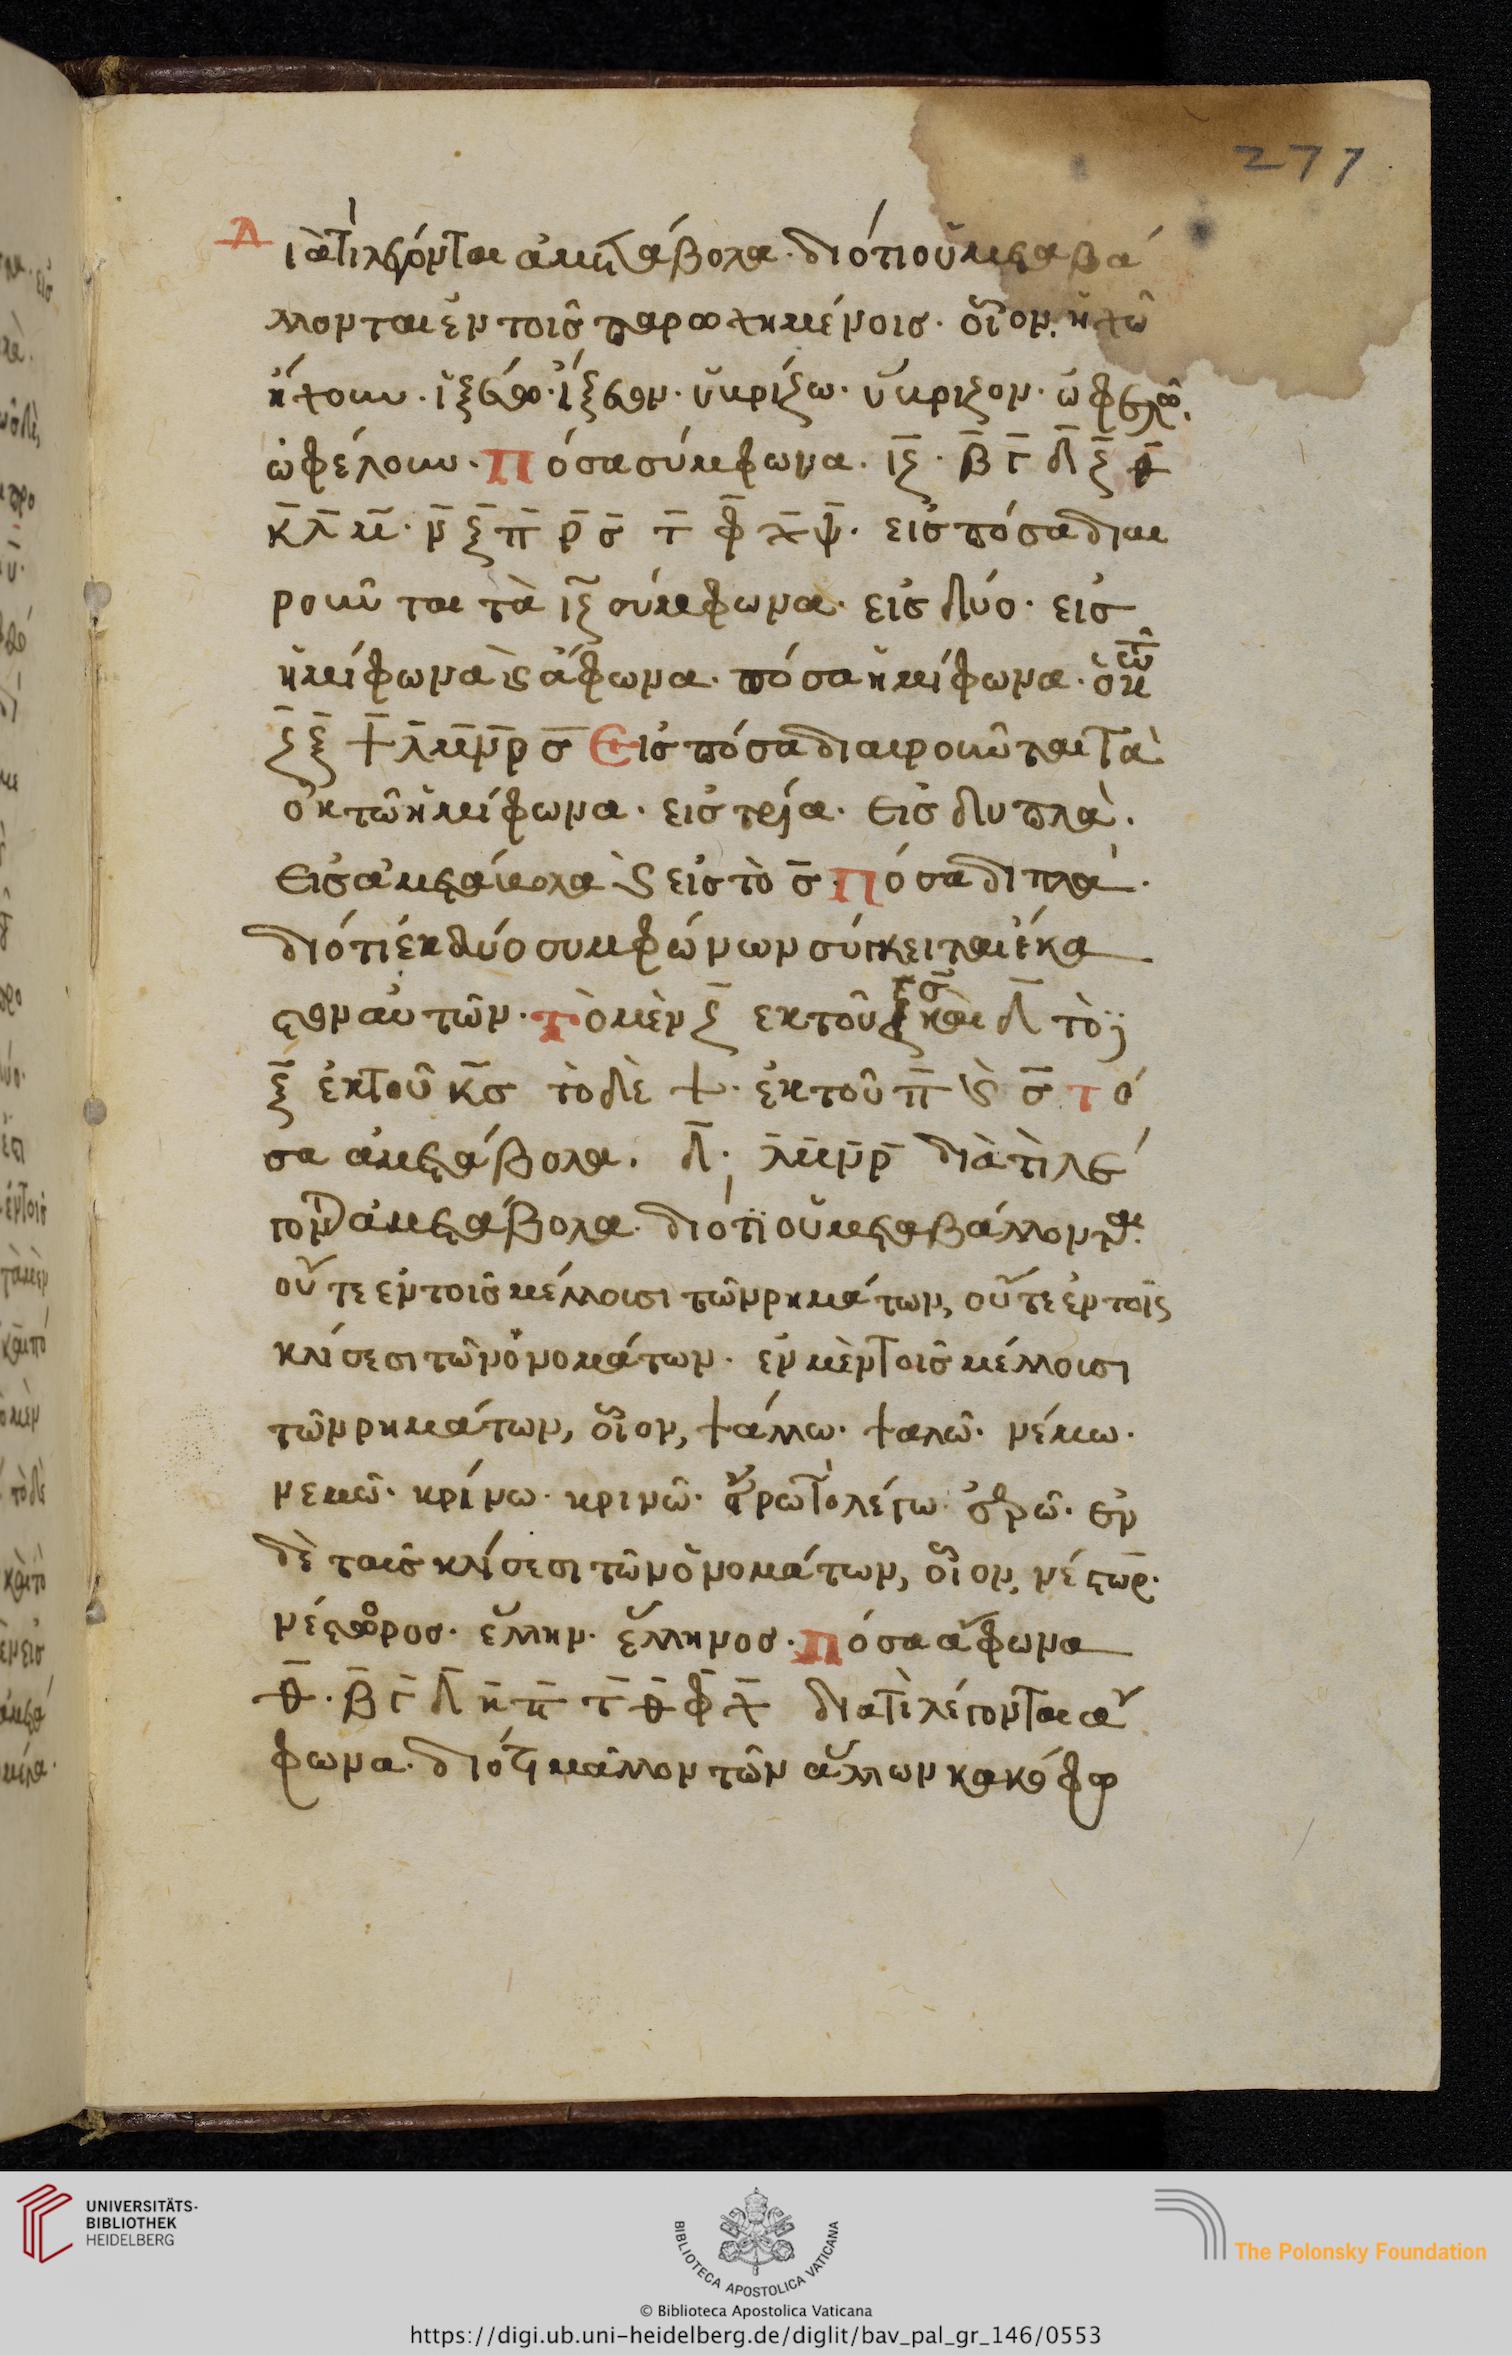 277
Διὰ τί λέγονται ἀμετάβολα. διότι οὐ μεταβά
λλονται ἐν τοῖς παρωχημένοις. οἷον. ἠχῶ
ἤχουν. ἰξεύω. ἴξευον. ὑβρίζω. ὕβριζον. ὠφελῶ.
ὠφέλουν. Πόσα σύμφωνα. ιζ̄. β̄ γ̄ δ̄ ζ̄ θ̄
κ̄ λ̄ μ̄. ν̄ ξ̄ π̄ ρ̄ σ̄ τ̄ φ̄ χ̄ ψ̄. εἰς πόσα διαι
ροῦνται τὰ ιζ̄ σύμφωνα. εἰς δύο. εἰς
ἡμίφωνα καὶ ἄφωνα. πόσα ἡμίφωνα. ὀκτῶ
ζ̄ ξ̄ ψ̄ λ̄ μ̄ ν̄ ρ̄ σ̄ Εἰς πόσα διαιροῦνται τὰ
ὀκτῶ ἡμίφωνα. εἰς τρία. εἰς διπλὰ.
εἰς ἀμετάβολα καὶ εἰς τὸ σ̄. Πόσα διπλὰ.
διότι ἐκ δύο συμφώνων σύγκειται ἕκα
στον αὐτῶν. τὸ μὲν ζ̄ ἐκ τοῦ σ̄ καὶ δ̄ τὸ
ξ̄ ἐκ τοῦ κ̄ σ̄ τὸ δὲ ψ. ἐκ τοῦ π̄ καὶ σ̄ πό
σα ἀμετάβολα. δ̄. λ̄ μ̄ ν̄ ρ̄ διὰ τί λέ
γονται ἀμετάβολα. διότι οὐ μεταβάλλονται.
οὔτε ἐν τοῖς μέλλουσι τῶν ρημάτων, οὔτε ἐν τοῖς
κλίσεσι τῶν ὀνομάτων. ἐν μὲν τοῖς μέλλουσι
τῶν ρημάτων, οἷον, ψάλλω. ψαλῶ. νέμω.
νεμῶ. κρίνω. κρινῶ. σπείρω τὸ λέγω σπερῶ. ἐν
δὲ ταῖς κλίσεσι τῶν ὀνομάτων, οἷον, νέστωρ.
νέστορος. ἕλλην. ἕλληνος. Πόσα ἄφωνα
θ̄. β̄ γ̄ δ̄ κ̄ π̄ τ̄ θ̄ φ̄ χ̄ διατὶ λέγονται ἄ
φωνα. διότι μᾶλλον τῶν ἄλλων κακόφω
UNIVERSITÄTS-
BIBLIOTHEK
HEIDELBERG
BIBLIOTECA APOSTOLICA VATICANA
The Polonsky Foundation
© Biblioteca Apostolica Vaticana
https://digi.ub.uni-heidelberg.de/diglit/bav_pal_gr_146/0553